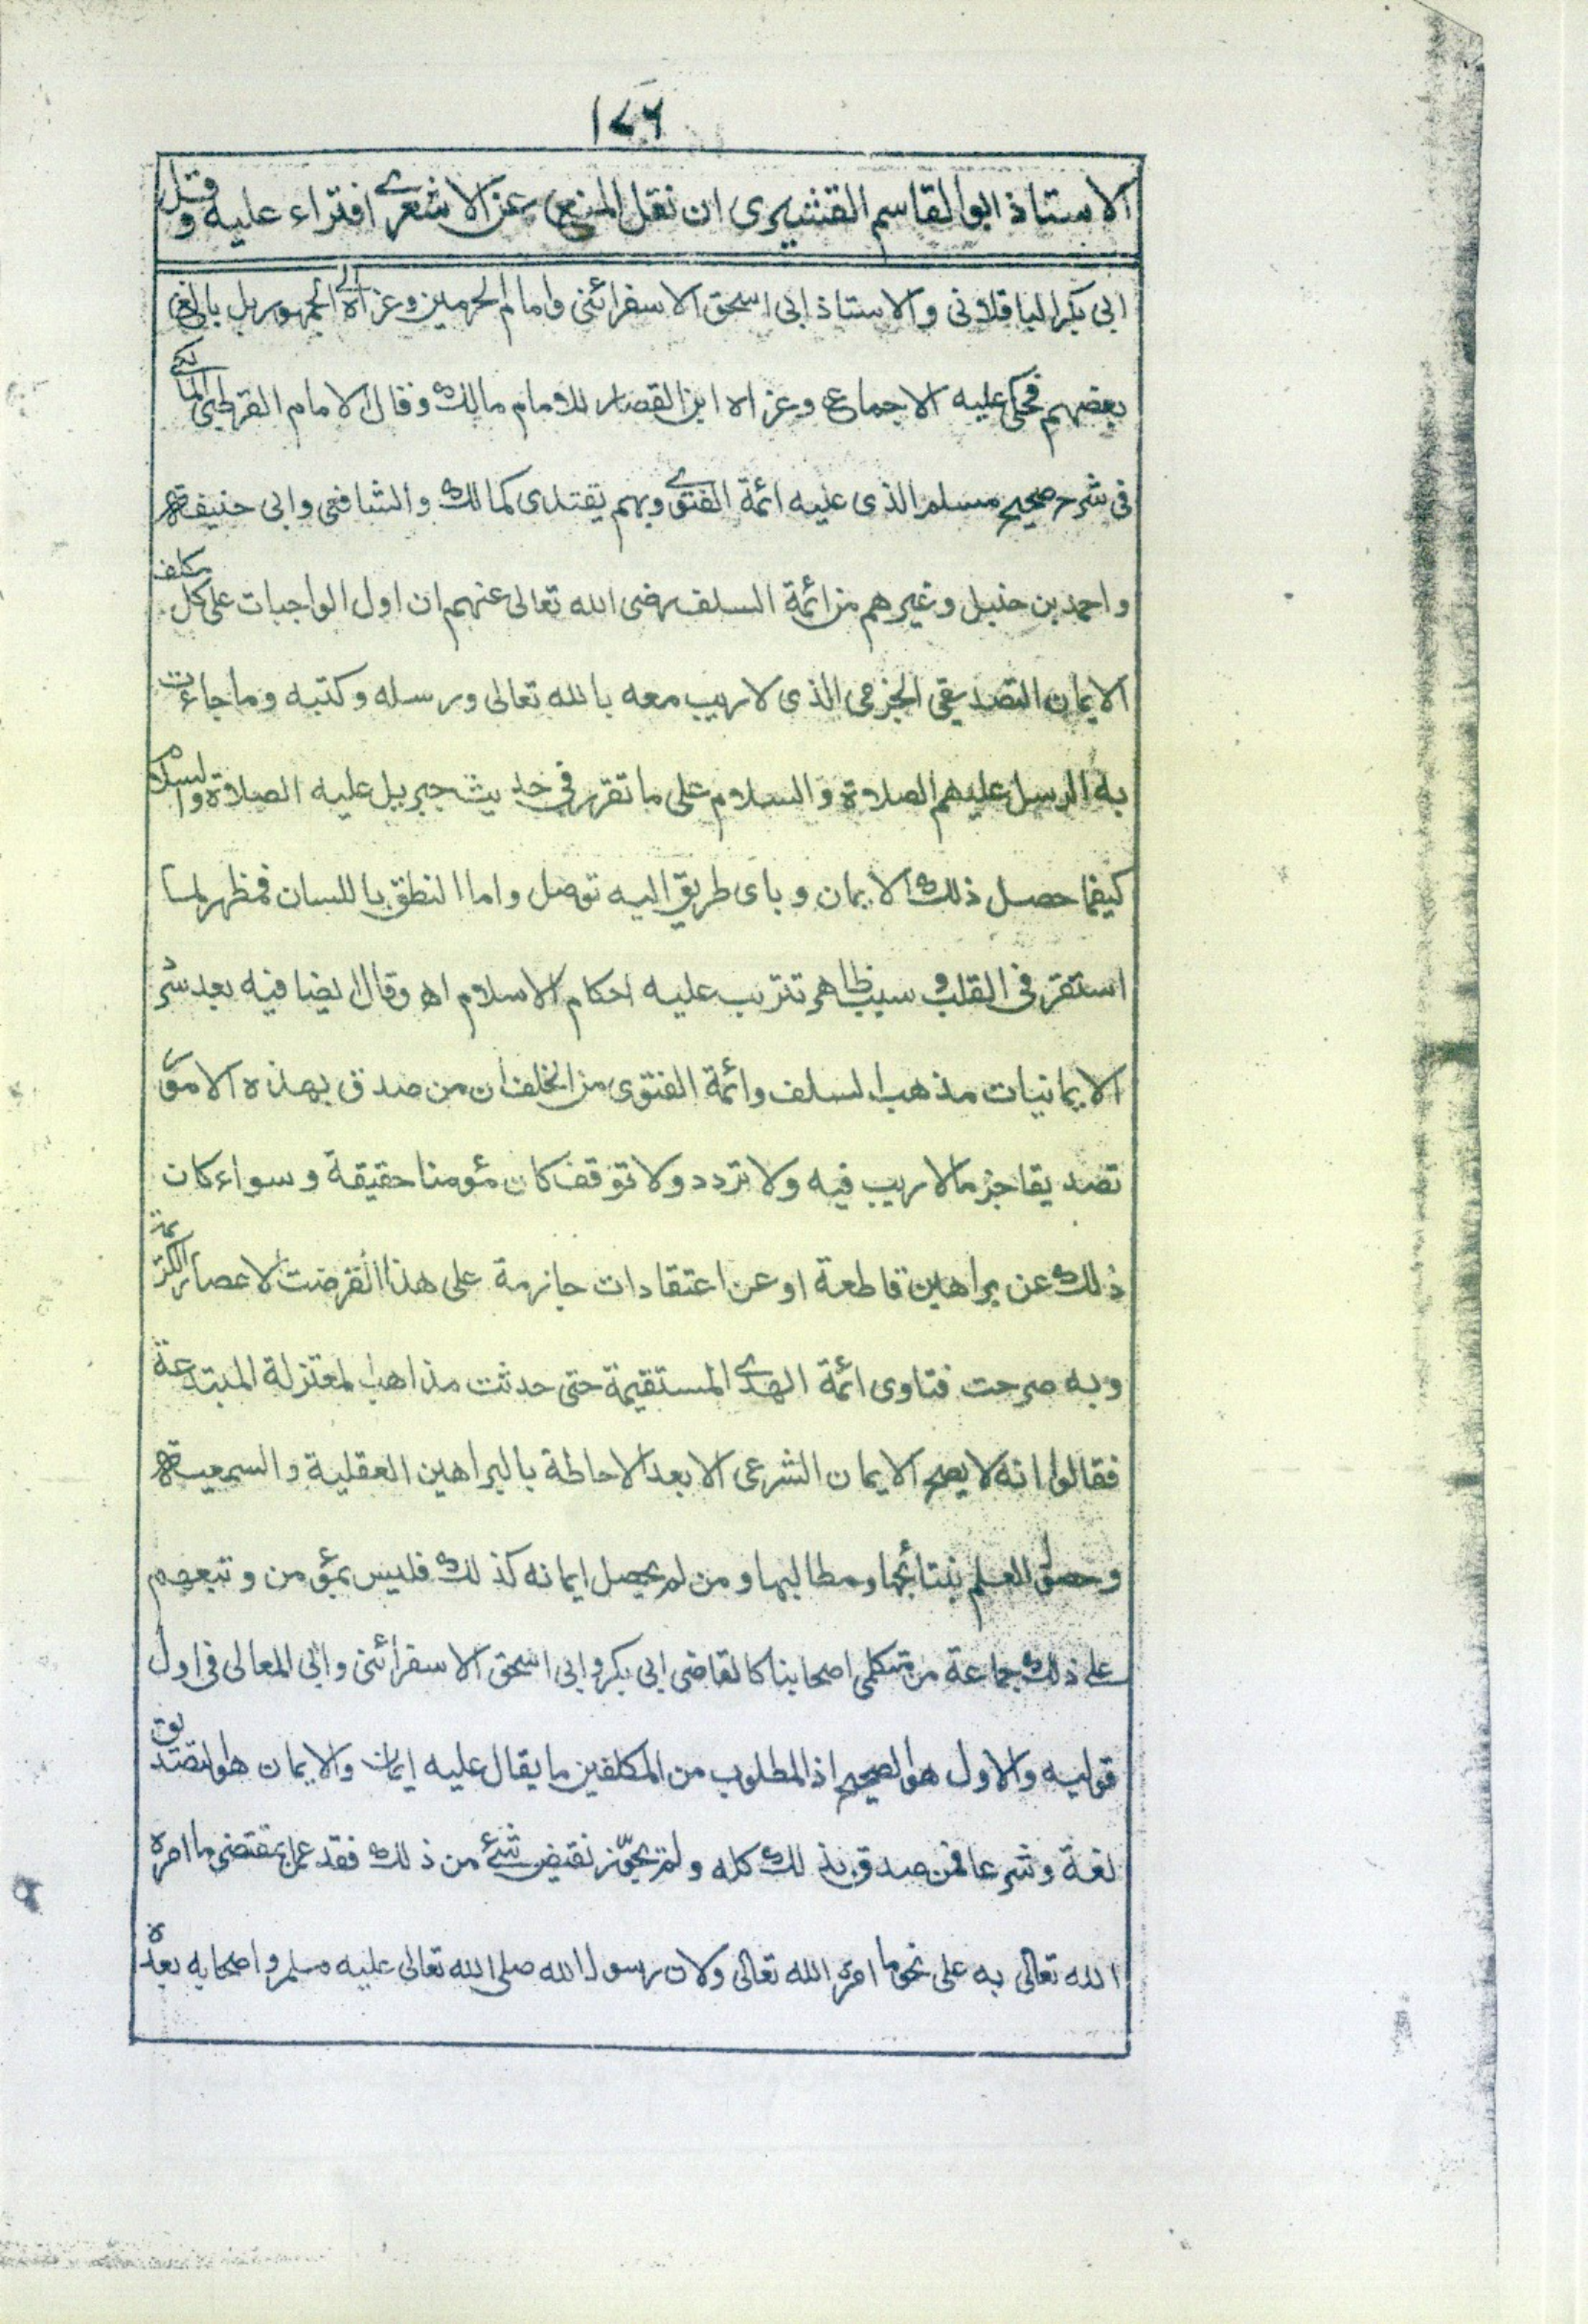 ١٧٦
الاستاذ ابو القاسم القشيرى ان نقل المنع عن الاشعرى افتراء عليه وقيل
ابى بكر الباقلانى والاستاذ ابى اسحق الاسفرائنى وامام الحرمين وعزاه الى الجمهور بل بالغ
بعضهم فحكى عليه الاجماع وعزاه ابن القصار للامام مالك وقال الامام القرطبى المالكى
فى شرح صحيح مسلم الذى عليه ائمة الفتوى وبهم يقتدى كمالك والشافعى وابى حنيفة
واحمد بن حنبل وغيرهم من ائمة السلف رضى الله تعالى عنهم ان اول الواجبات على كل مكلف
الايمان التصديقى الجزمى الذى لا ريب معه بالله تعالى ورسله وكتبه وما جاءت
به الرسل عليهم الصلاة والسلام على ما تقرر فى حديث جبريل عليه الصلاة والسلام
كيفما حصل ذلك الايمان وباى طريق اليه توصل واما النطق باللسان فمظهر لما
استقر فى القلب وسبب ظاهر تترتب عليه احكام الاسلام اه وقال ايضا فيه بعد سرد
الايمانيات مذهب السلف وائمة الفتوى من الخلف ان من صدق بهذه الامور
تصديقا جزما لا ريب فيه ولا تردد ولا توقف كان مؤمنا حقيقة وسواء كان
ذلك عن براهين قاطعة او عن اعتقادات جازمة على هذا انقرضت الاعصار الكريمة
وبه صرحت فتاوى ائمة الهدى المستقيمة حتى حدثت مذاهب المعتزلة المبتدعة
فقالوا انه لا يصح الايمان الشرعى الا بعد الاحاطة بالبراهين العقلية والسمعية
وحصول العلم بنتائجها ومطالبها ومن لم يحصل ايمانه كذلك فليس بمؤمن وتبعهم
على ذلك جماعة من متكلمى اصحابنا كالقاضى ابى بكر وابى اسحق الاسفرائنى وابى المعالى فى اول
قوليه والاول هو الصحيح اذ المطلوب من المكلفين ما يقال عليه ايمان والايمان هو التصديق
لغة وشرعا فمن صدق بذلك كله ولم يجوّز نقيض شئ من ذلك فقد عمل بمقتضى ما امره
الله تعالى به على نحو ما امره الله تعالى ولان رسول الله صلى الله تعالى عليه وسلم واصحابه بعده